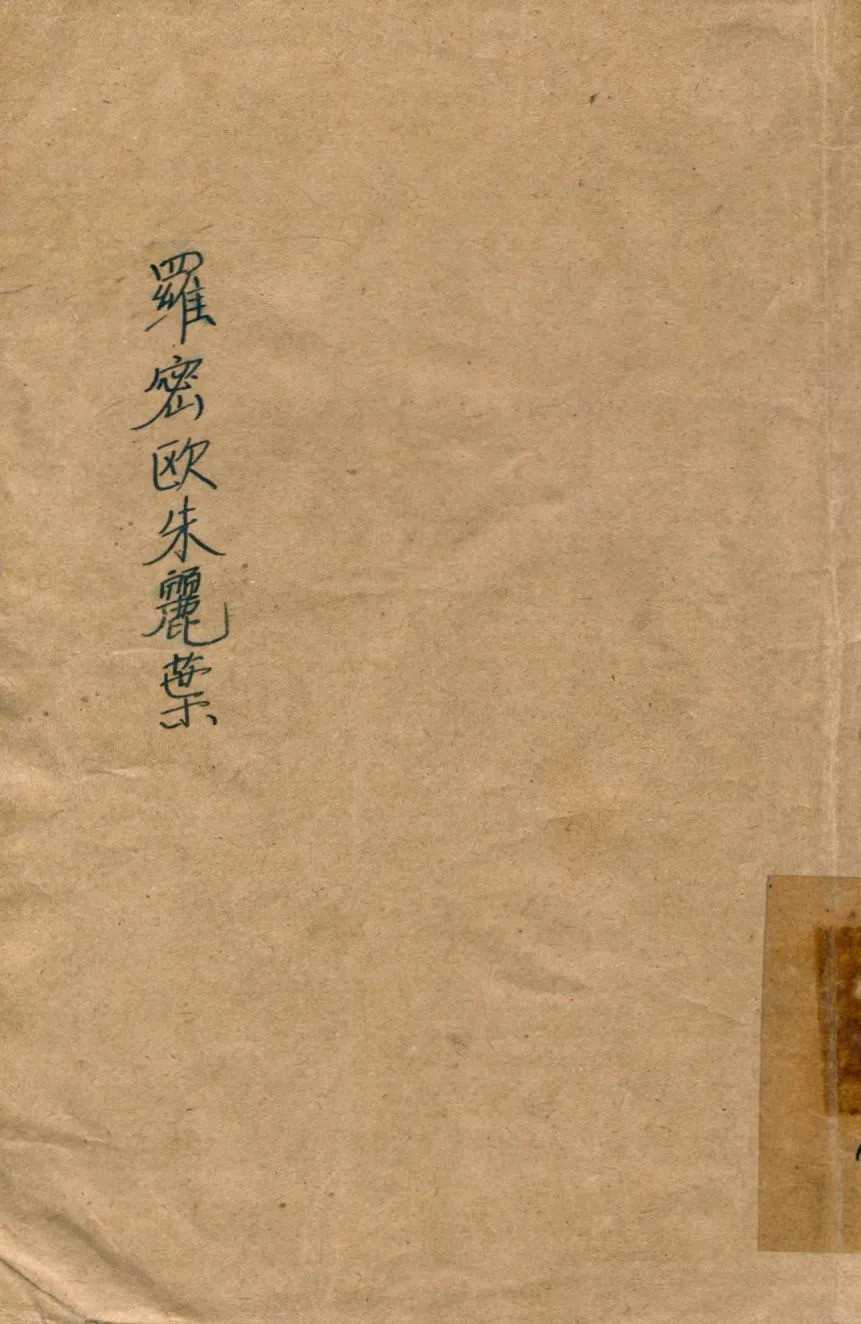 羅密欧朱麗葉